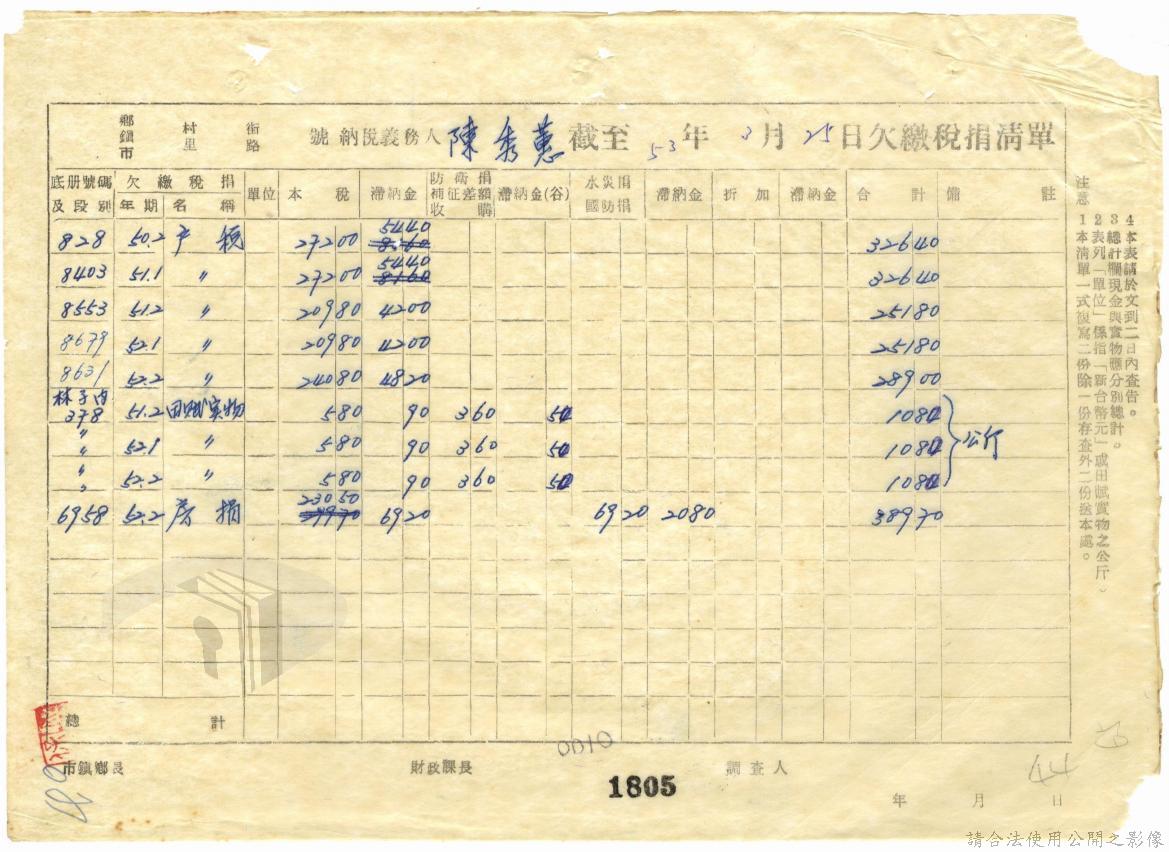 鄉鎮市 村里 街路 號納稅義務人 陳秀蕙 截至 53 年 3 月 25 日欠繳稅捐清單
底册號碼及段別 欠繳稅捐 年期 名稱 單位 本稅 滯納金 防衛捐 補征差額 收購 滯納金(谷) 水災捐 國防捐 滯納金 折加 滯納金 合計 備註
828 50.2 戶稅 27200 5440 32640
8403 51.1 〃 27200 5440 32640
8553 51.2 〃 20980 4200 25180
8679 52.1 〃 20980 4200 25180
8631 52.2 〃 24080 4820 28900
林子內
378 51.2 田賦實物 580 90 360 54 1084
〃 52.1 〃 580 90 360 54 1084 公斤
〃 52.2 〃 580 90 360 54 1084
6958 52.2 房捐 23050 6920 6920 2080 38970
總計
市鎮鄉長 財政課長 調查人
0010
1805
44
年 月 日
注意
1 本清單一式復寫二份除一份存查外二份送本處。
2 表列「單位」係指「新台幣元」或田賦實物之公斤。
3 總計欄現金與實物應分別總計。
4 本表請於文到二日內查告。
請合法使用公開之影像